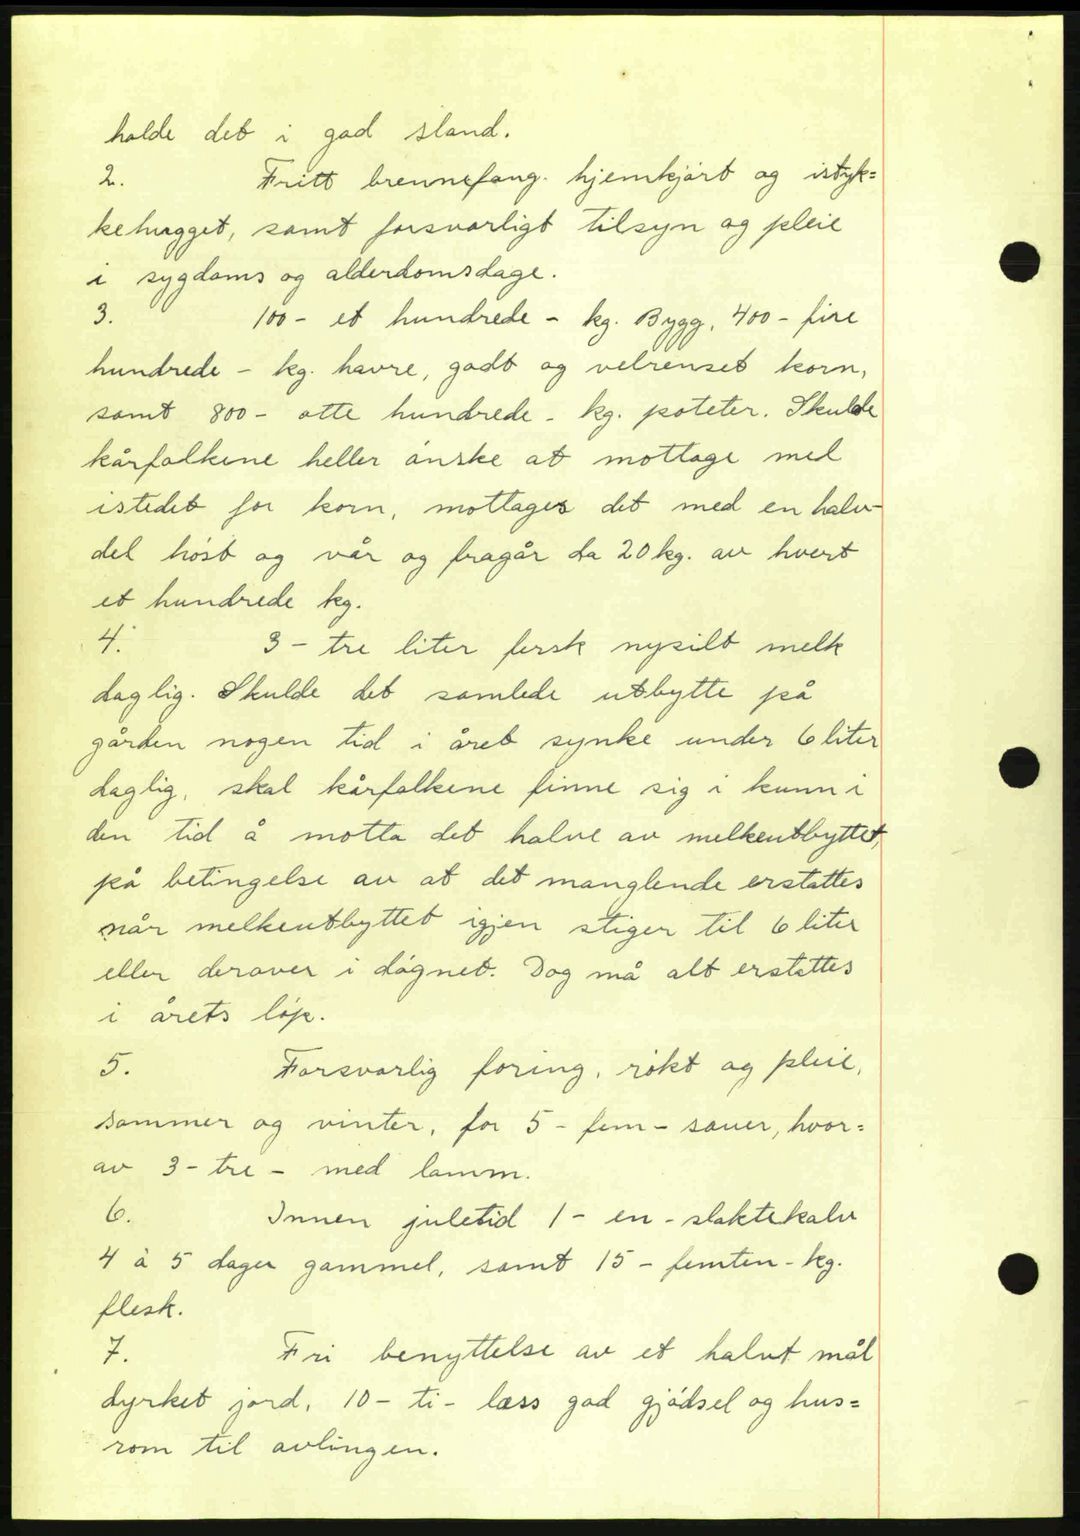 holde det i god stand.
2. Fritt brennefang. hjemkjørt og istyk=
kehugget, samt forsvarligt tilsyn og pleie
i sygdoms og alderdomsdage.
3. 100 - et hundrede - kg. Bygg, 400 - fire
hundrede - kg. havre, godt og velrenset korn,
samt 800 - otte hundrede - kg. poteter. Skulde
kårfolkene heller ønske at mottage mel
istedet for korn, mottages det med en halv-
del høst og vår og fragår da 20 kg. av hvert
et hundrede kg.
4. 3 - tre liter fersk nysilt melk
daglig. Skulde det samlede utbytte på
gården nogen tid i året synke under 6 liter
daglig, skal kårfolkene finne sig i kunn i
den tid å motta det halve av melkeutbyttet,
på betingelse av at det manglende erstattes
når melkeutbyttet igjen stiger til 6 liter
eller derover i døgnet. Dog må alt erstattes
i årets løp.
5. Forsvarlig foring, røkt og pleie,
sommer og vinter, for 5 - fem - sauer, hvor=
av 3 - tre - med lamm.
6. Innen juletid 1 - en - slaktekalv
4 à 5 dager gammel, samt 15 - femten - kg.
flesk.
7. Fri benyttelse av et halvt mål
dyrket jord, 10 - ti - læss god gjødsel og hus=
rom til avlingen.